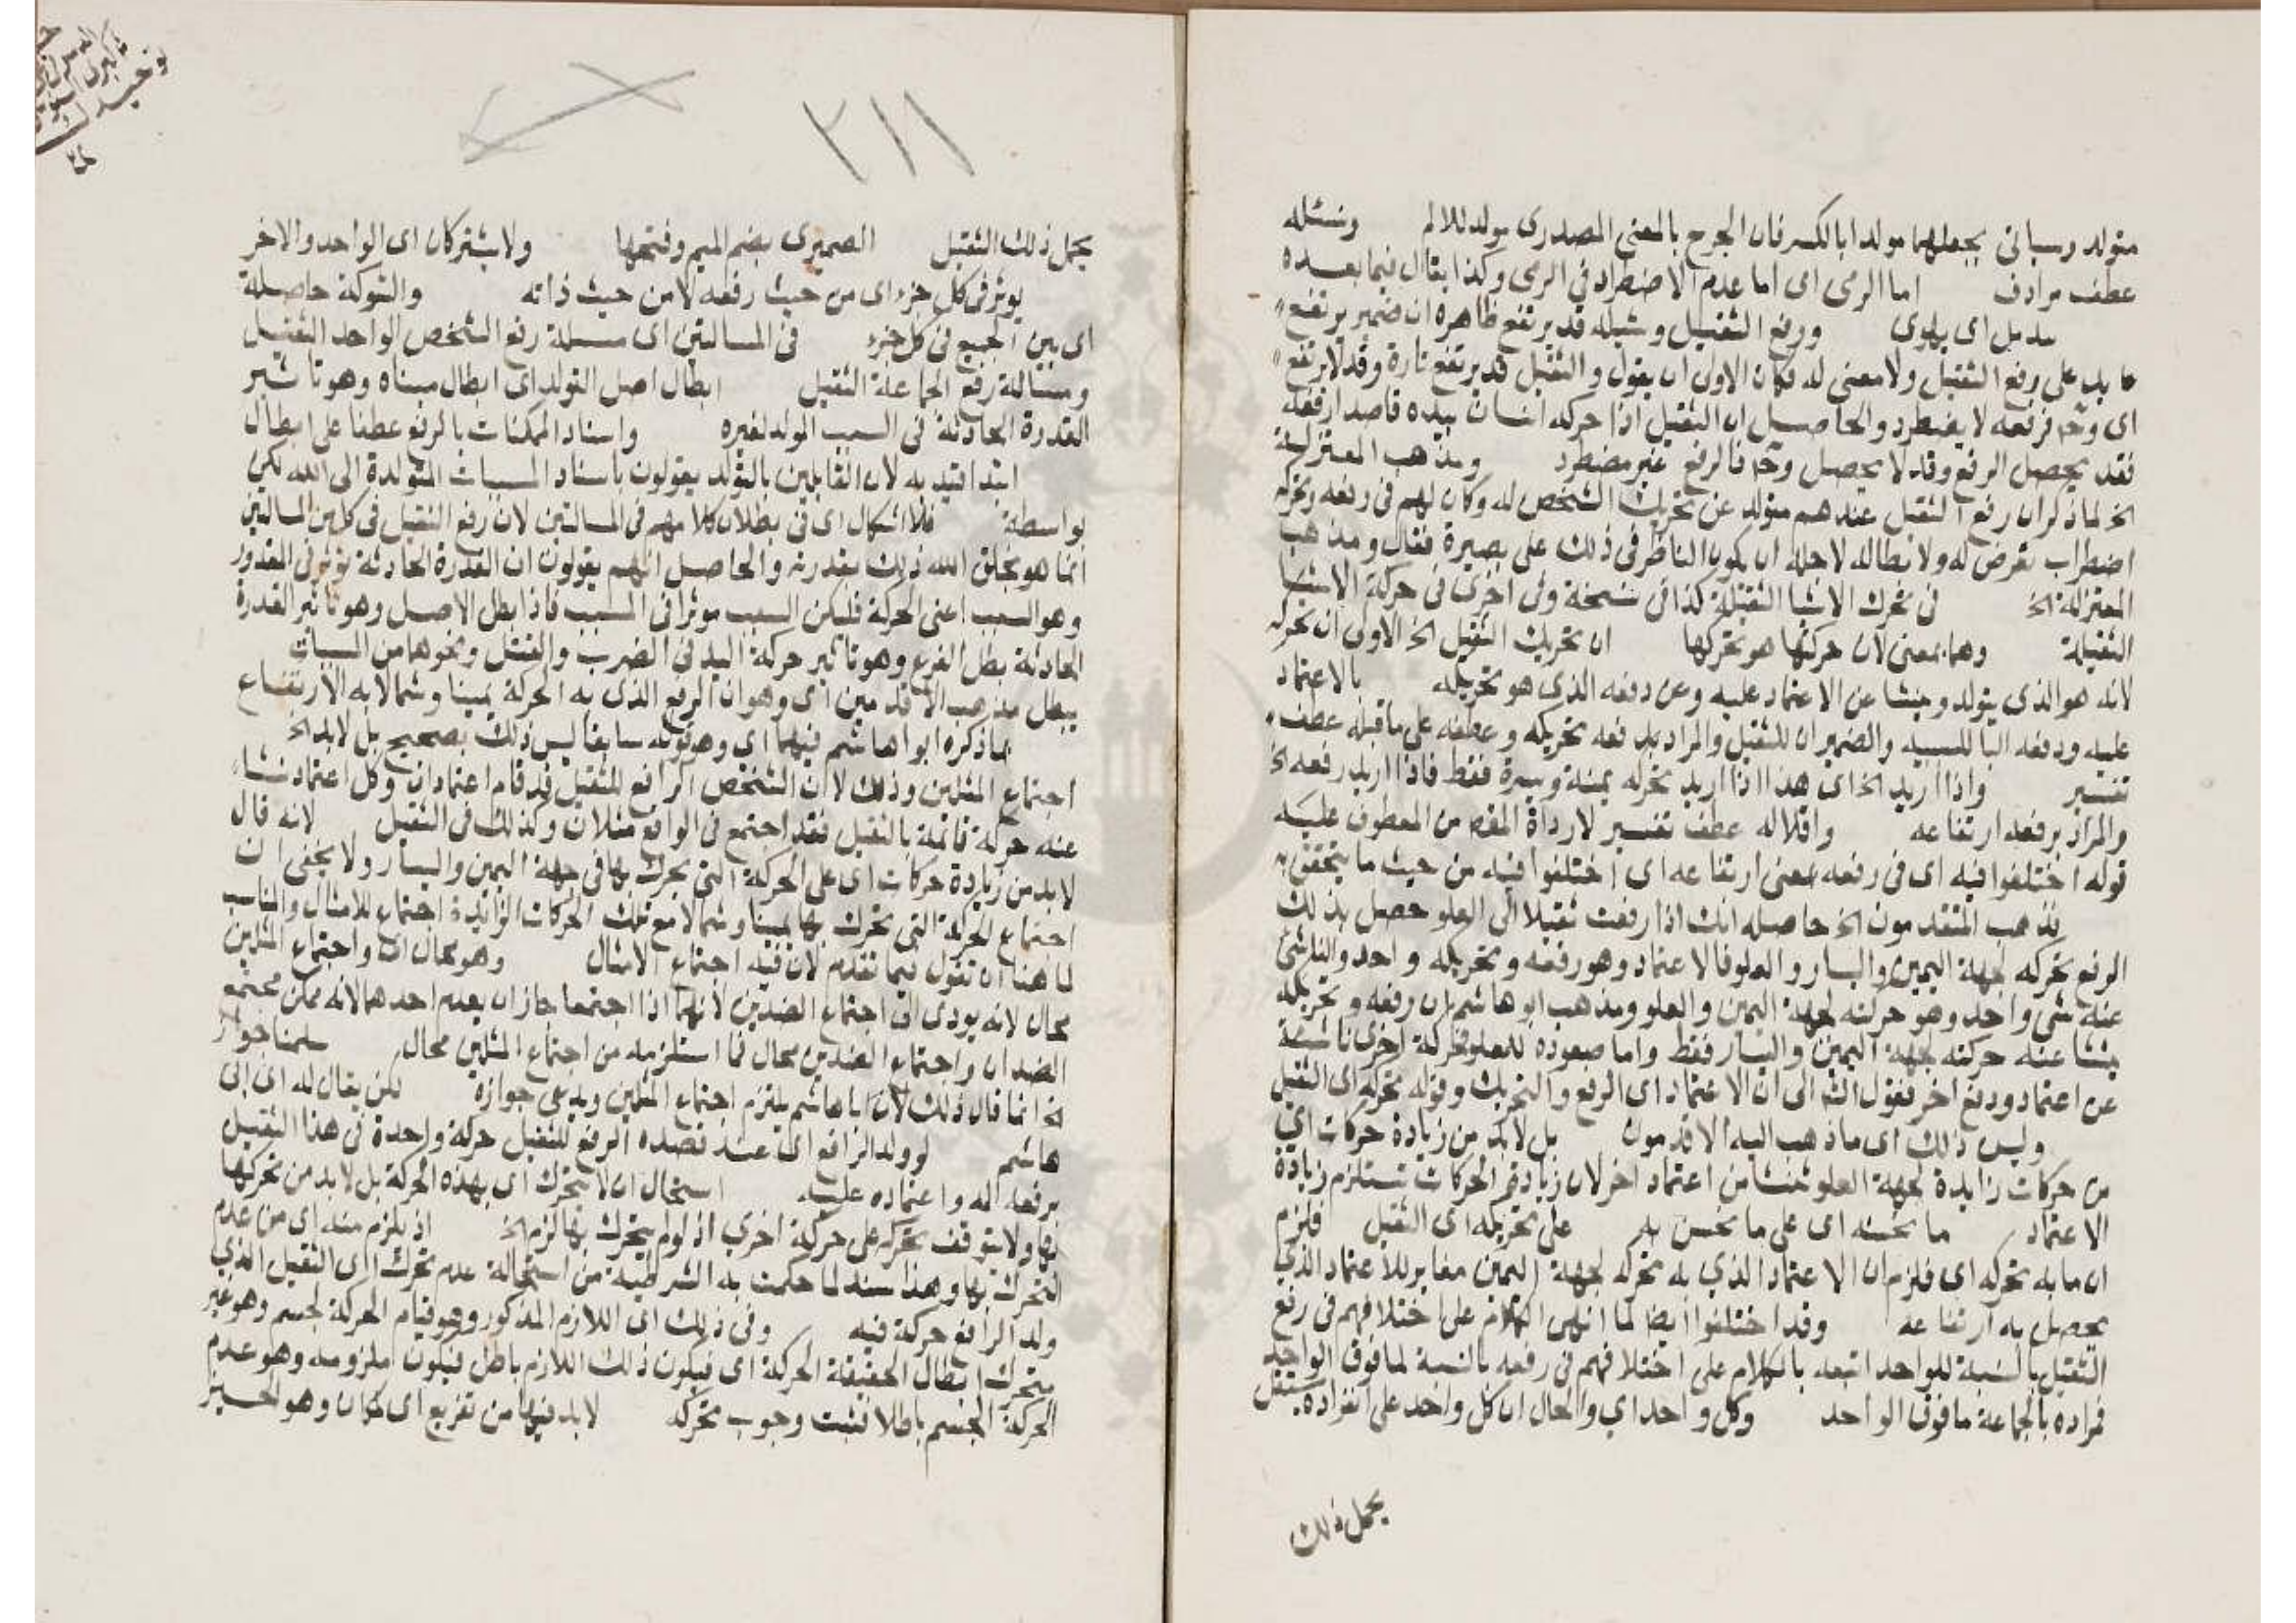 متولد وسياتى يجعلهما مولدا بالكسر فان الجرح بالمعنى المصدرى مولد للالم وشله
عطف مرادف اما الرمى اى اما عدم الاضطراد فى الرمى وكذا يقال فيما بعده
اى يهوى ورفع الثقيل وشيله قد يرتفع ظاهره ان ضمير يرتفع
عايد على رفع الثقيل ولا معنى له فكان الاولى ان يقول والثقيل قد يرتفع تارة وقد لا يرتفع
اى وح فرفعه لا يضطرد والحاصل ان الثقيل اذا حركه انسان بيده قاصدا رفعه
فقد يحصل الرفع وقد لا يحصل وح فالرفع غير مضطرد ومذهب المعتزلة
الخ لما ذكر ان رفع الثقيل عندهم متولد عن تحريك الشخص له وكان لهم فى رفعه وتحركه
اضطراب تعرض له ولابطاله لاجل ان يكون الناظر فى ذلك على بصيرة فقال ومذهب
المعتزلة الخ فى تحرك الاشيا الثقيلة كذا فى نسخة وفى اخرى فى حركة الاشيا
الثقيلة وهما بمعنى لان حركتها هو تحركها ان تحريك الثقيل الخ الاولى ان تحركه
لانه هو الذى يتولد وينشا عن الاعتماد عليه وعن دفعه الذى هو تحريكه بالاعتماد
عليه ودفعه البا للسببية والضميران للثقيل والمراد بدفعه تحريكه وعطفه على ما قبله عطف
تفسير واذا اريد الخ اى هذا اذا اريد تحركه يمنة ويسرة فقط فاذا اريد رفعه الخ
والمراد برفعه ارتفاعه واقلاله عطف تفسير لارداة المفهم من المعطوف عليه
قوله اختلفوا فيه اى فى رفعه بمعنى ارتفاعه اى اختلفوا فيه من حيث ما يتحقق به
فذهب المتقدمون الخ حاصله انك اذا رفعت ثقيلا الى العلو حصل بذلك
الرفع تحركه لجهة اليمين واليسار والعلو فالاعتماد وهو رفعه وتحريكه واحد والناشئ
عنه شئ واحد وهو حركته لجهة اليمين والعلو ومذهب ابو هاشم ان رفعه وتحريكه
ينشا عنه حركته لجهة اليمين واليسار فقط واما صعوده للعلو فحركة اخرى ناشئة
عن اعتماد ودفع اخر فقول الش الى ان الاعتماد اى الرفع والتحريك وقوله تحركه اى الثقيل
وليس ذلك اى ما ذهب اليه الاقدمون بل لابد من زيادة حركات اى
من حركات زايدة لجهة العلو تنشا من اعتماد اخر لان زيادة الحركات تستلزم زيادة
الاعتماد ما يحسنه اى على ما يحسن به على تحريكه اى الثقيل فلزم
ان ما به تحركه اى فلزم ان الاعتماد الذي به تحركه لجهة اليمين مغاير للاعتماد الذي
يحصل به ارتفاعه وقد اختلفوا ايضا لما انهى الكلام على اختلافهم فى رفع
الثقيل بالنسبة للواحد اتبعه بالكلام على اختلافهم فى رفعه بالنسبة لما فوق الواحد
فمراده بالجماعة ما فوق الواحد وكل واحد اي والحال ان كل واحد على انفراده يستقل
بحمل ذلك
٢١١
بحمل ذلك الثقيل الصميرى بضم الميم وفتحها ولا يشتركان اى الواحد والاخر
يوثر فى كل جزء اى من حيث رفعه لا من حيث ذاته والشركة حاصلة
اى بين الجميع فى كل جزء فى المسالتين اى مسئلة رفع الشخص الواحد الثقيل
ومسالة رفع الجماعة الثقيل ابطال اصل التولد اى ابطال مبناه وهو تاثير
القدرة الحادثة فى السبب المولد لغيره واسناد الممكنات بالرفع عطفا على ابطال
ابتدا قيد به لان القايلين بالتولد يقولون باسناد المسببات المتولدة الى الله لكن
بواسطة فلا اشكال اى فى بطلان كلامهم فى المسالتين لان رفع الثقيل فى كل من المسالتين
انما هو بخلق الله ذلك بقدرته والحاصل انهم يقولون ان القدرة الحادثة توثر فى المقدور
وهو السبب اعنى الحركة فليكن السبب موثرا فى المسبب فاذا بطل الاصل وهو تاثير القدرة
الحادثة بطل الفرع وهو تاثير حركة اليد فى الضرب والقتل ونحوهما من المسببات
يبطل مذهب الاقدمين اى وهو ان الرفع الذى به الحركة يمينا وشمالا به الارتفاع
لما ذكره ابوا هاشم فيهما اى وهو قوله سابقا ليس ذلك بصحيح بل لابد الخ
اجتماع المثلين وذلك لان الشخص الرافع للثقيل قد قام اعتمادان وكل اعتماد نشا
عنه حركة قائمة بالثقيل فقد اجتمع فى الواقع مثلان وكذلك فى الثقيل لانه قال
لابد من زيادة حركات اى على الحركة التى يحرك بها فى جهة اليمين واليسار ولا يخفى ان
اجتماع الحركة التى تحرك بها يمينا وشمالا مع تلك الحركات الزايدة اجتماع للامثال والمناسب
لما هنا ان تقول فيما تقدم لان فيه اجتماع الامثال وهو محال اى واجتماع المثلين
محال لانه يودى الى اجتماع الضدين لانهما اذا اجتمعا جاز ان يعدم احدهما لانه ممكن فيجتمع
الضدان واجتماع الضدين محال فما استلزمه من اجتماع المثلين محال سلمنا جواز
الخ انما قال ذلك لان ابا هاشم يلتزم اجتماع المثلين ويدعى جوازه لكن يقال له اى ابى
هاشم لو ولد الرافع اى عند قصده الرفع للثقيل حركة واحدة فى هذا الثقيل
برفعه له واعتماده عليه استحال ان لا يتحرك اى بهذه الحركة بل لابد من تحركها
بها ولا يتوقف تحركه على حركة اخري اذ لو لم يتحرك بها لزم الخ اذ يلزم منه اى من عدم
التحرك بها وهذا سند لما حكمت به الشرطية من استحالة عدم تحرك اى الثقيل الذي
ولد الرافع حركة فيه وفى ذلك اى اللازم المذكور وهو قيام الحركة لجسم وهو غير
متحرك ابطال الحقيقة الحركة اى فيكون ذلك اللازم باطل فيكون ملزومه وهو عدم
الحركة الجسم باطلا فثبت وجوب تحركه لابد فيها من تفريع اى مكان وهو الحيز